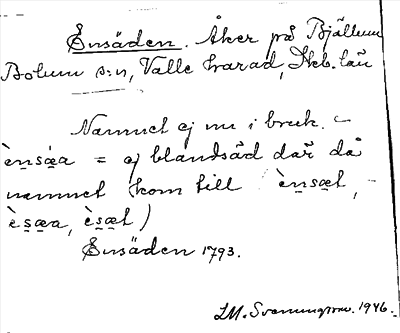 Ensäden. Åker på Bjällum
Bolum s:n, Valle härad, Skb. län
Namnet ej nu i bruk. –
èn̲sæ̲a = ej blandsäd där då
namnet kom till èn̲sæt, –
ès̲æ̲a, ès̲æt)
Ensäden 1793.
1946.